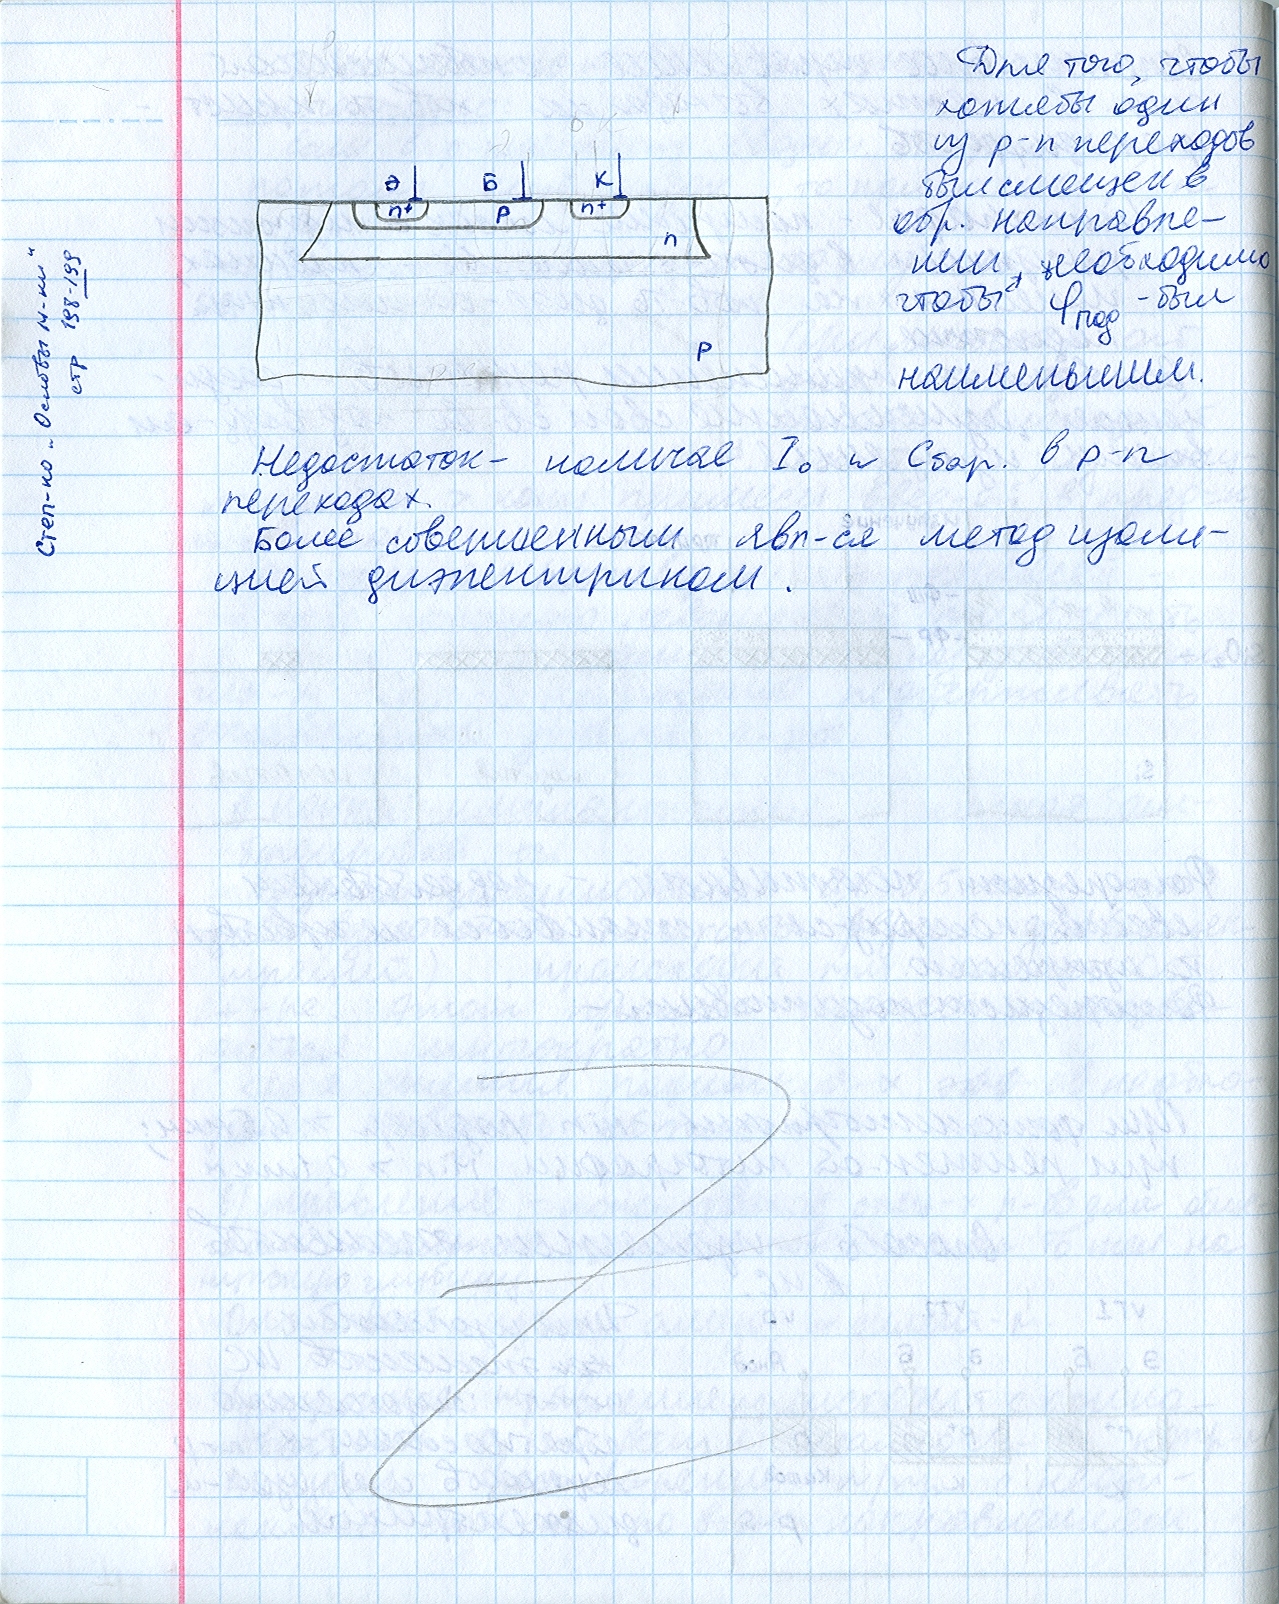 Для того, чтобы
хотябы один
из p-n переходов
был смещен в
обр. направле-
нии, необходимо
чтобы φпод - был
наименьшим.
Э Б К
n+ p n+
n
p
Степ-ко „Основы м-ки"
стр 198-199
Недостаток - наличие I₀ и Cбар. в p-n
переходах.
Более совершенным явл-ся метод изоля-
цией диэлектриком.